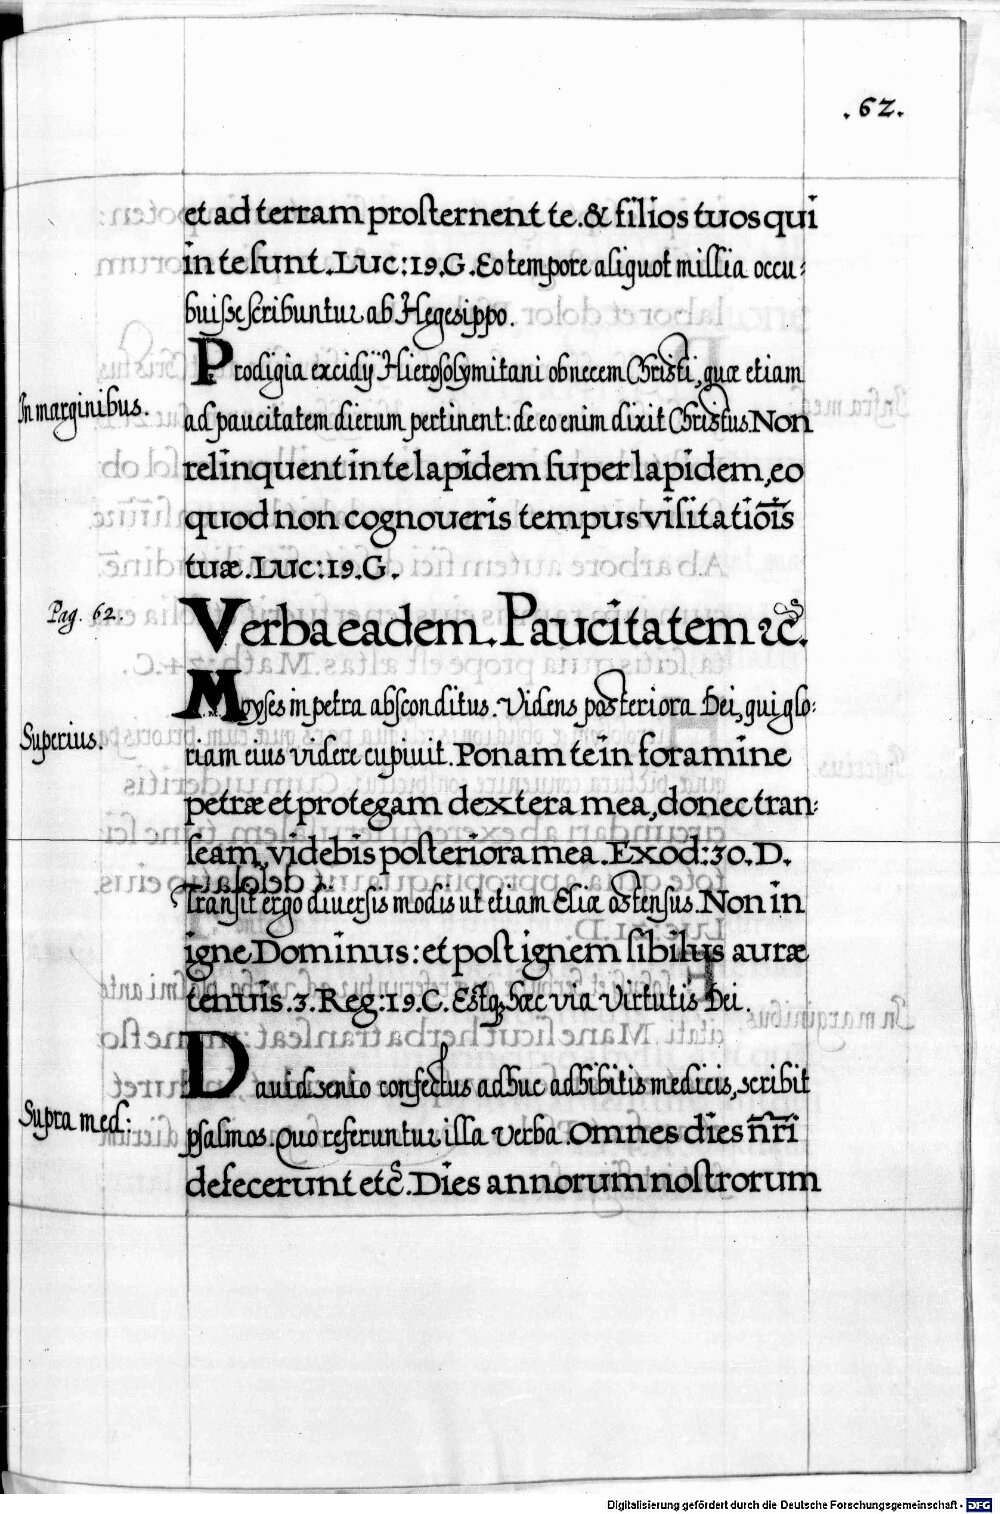 .62.
et ad terram prosternent te. & filios tuos qui
in te sunt. Luc: 19. G. Eo tempore aliquot millia occu-
buisse scribuntur ab Hegesippo.
Prodigia excidij Hierosolymitani ob necem Christi, quæ etiam
In marginibus.
ad paucitatem dierum pertinent: de eo enim dixit Christus. Non
relinquent in te lapidem super lapidem, eo
quod non cognoueris tempus visitatiōis
tuæ. Luc: 19. G.
Pag. 62.
Verba eadem. Paucitatem &c.
Moyses in petra absconditus. Videns posteriora Dei, qui glo-
Superius.
riam eius videre cupiuit. Ponam te in foramine
petræ et protegam dextera mea, donec tran-
seam, videbis posteriora mea. Exod: 30. D.
Transit ergo diuersis modis ut etiam Eliæ ostensus. Non in
igne Dominus: et post ignem sibilus auræ
tenuis. 3. Reg: 19. C. Estq; hæc via virtutis Dei.
Dauid senio confectus adhuc adhibitis medicis, scribit
Supra med:
psalmos. Quo referuntur illa verba. Omnes dies nr̄i
defecerunt etc̄. Dies annorum nostrorum
Digitalisierung gefördert durch die Deutsche Forschungsgemeinschaft - DFG